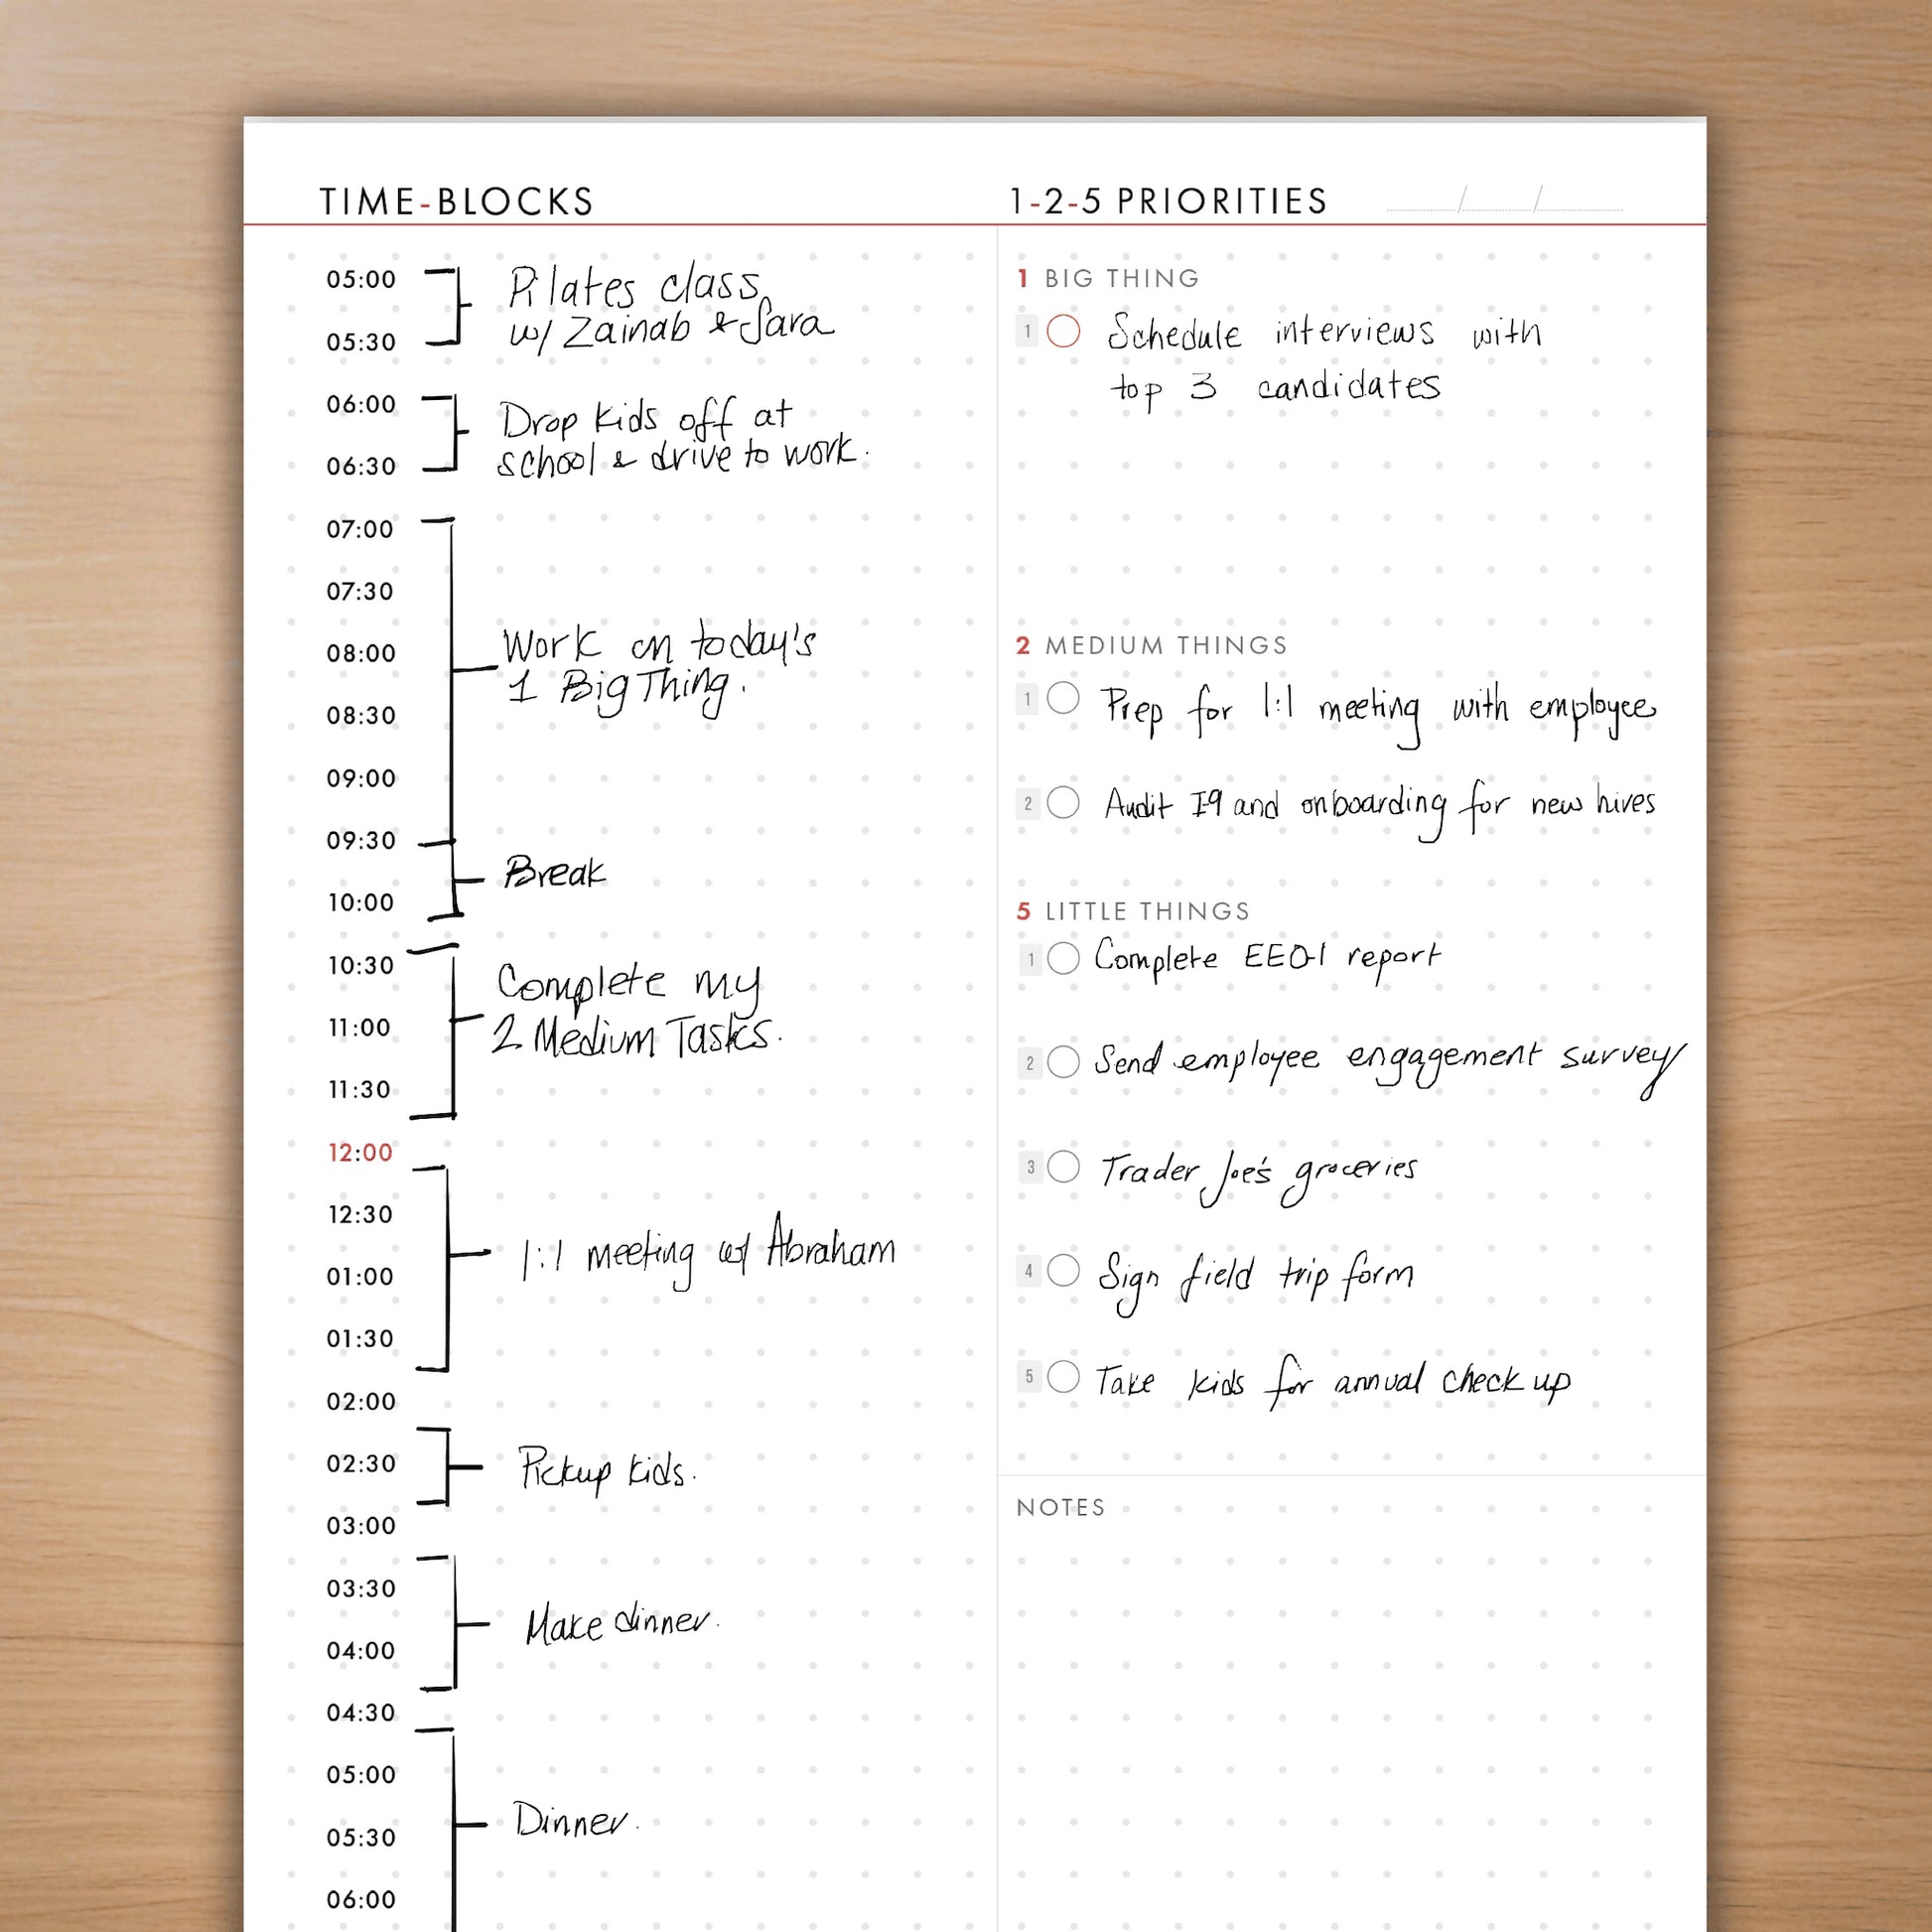 TIME-BLOCKS
05:00
Pilates class
w/ Zainab & Sara
05:30
06:00
Drop kids off at
school & drive to work.
06:30
07:00
07:30
08:00
Work on today's
1 Big Thing.
08:30
09:00
09:30
Break
10:00
10:30
Complete my
2 Medium Tasks.
11:00
11:30
12:00
12:30
1:1 meeting w/ Abraham
01:00
01:30
02:00
02:30
Pickup kids.
03:00
03:30
Make dinner.
04:00
04:30
05:00
Dinner.
05:30
06:00
1-2-5 PRIORITIES / /
1 BIG THING
1 Schedule interviews with
top 3 candidates
2 MEDIUM THINGS
1 Prep for 1:1 meeting with employee
2 Audit I-9 and onboarding for new hires
5 LITTLE THINGS
1 Complete EEO-1 report
2 Send employee engagement survey
3 Trader Joe's groceries
4 Sign field trip form
5 Take kids for annual check up
NOTES